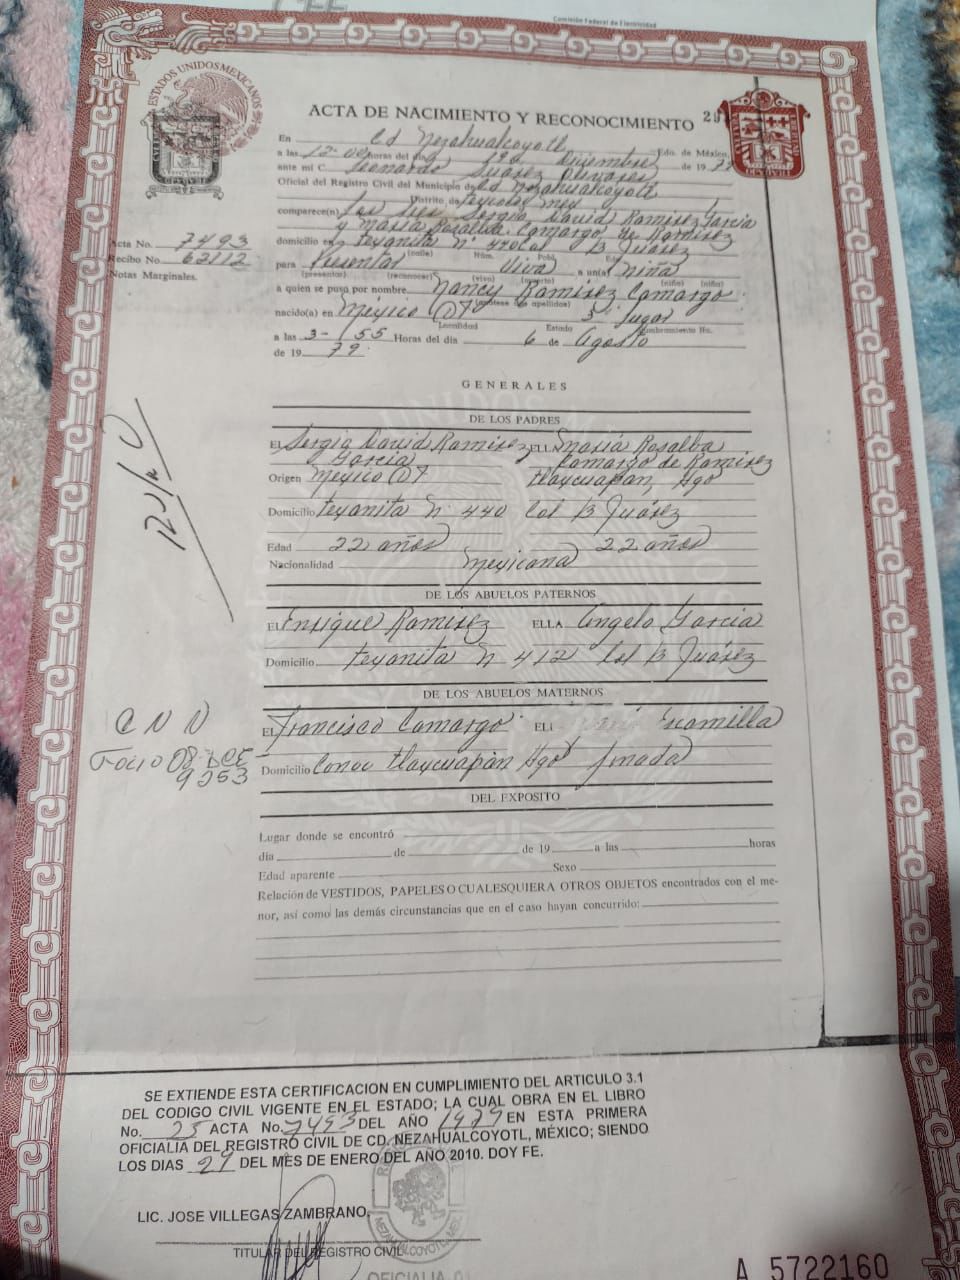 Comisión Federal de Electricidad
ESTADOS UNIDOS MEXICANOS
ACTA DE NACIMIENTO Y RECONOCIMIENTO
En Cd Nezahualcoyotl Edo. de México,
a las 12-00 horas del día 19 diciembre de 19
ante mi C. Leonardo Suárez Olivares
Oficial del Registro Civil del Municipio de Cd Nezahualcoyotl
Distrito de Texcoco Mex
comparece(n) Los Sres Sergio David Ramirez Garcia
y María Rosalba Camargo de Ramirez
Acta No. 7493
domicilio en Texanita nº 440 Col B Juárez
(calle) Núm. Pobl. Edo.
Recibo No. 62112
para Presentar Viva a un(a) niña
(presentar) (reconocer) (vivo) (muerto) (niño) (niña)
Notas Marginales.
a quien se puso por nombre Nancy Ramirez Camargo
nacido(a) en México D7 3 lugar
Localidad Estado
a las 3-55 Horas del día 6 de Agosto
de 19 79.
GENERALES
DE LOS PADRES
EL Sergio David Ramirez Garcia ELLA María Rosalba Camargo de Ramirez
Origen México D7 Tlaxcuapan, Hgo
Domicilio Texanita nº 440 Col B Juárez
Edad 22 años 22 años
Nacionalidad Mexicana
DE LOS ABUELOS PATERNOS
EL Enrique Ramirez ELLA Angela Garcia
Domicilio Texanita nº 412 Col B Juárez
DE LOS ABUELOS MATERNOS
C N N
EL Francisco Camargo
Folio 08
9253
Domicilio Conoc Tlaxcuapan Hgo finada
DEL EXPOSITO
Lugar donde se encontró
día de de 19 a las horas
Edad aparente Sexo
Relación de VESTIDOS, PAPELES O CUALESQUIERA OTROS OBJETOS encontrados con el me-
nor, así como las demás circunstancias que en el caso hayan concurrido:
SE EXTIENDE ESTA CERTIFICACION EN CUMPLIMIENTO DEL ARTICULO 3.1
DEL CODIGO CIVIL VIGENTE EN EL ESTADO; LA CUAL OBRA EN EL LIBRO
No. 25 ACTA No. 7493 DEL AÑO 1979 EN ESTA PRIMERA
OFICIALIA DEL REGISTRO CIVIL DE CD. NEZAHUALCOYOTL, MÉXICO; SIENDO
LOS DIAS 29 DEL MES DE ENERO DEL AÑO 2010. DOY FE.
LIC. JOSE VILLEGAS ZAMBRANO.
TITULAR DEL REGISTRO CIVIL
NEZAHUALCOYOTL
OFICIALIA 01
A 5722160